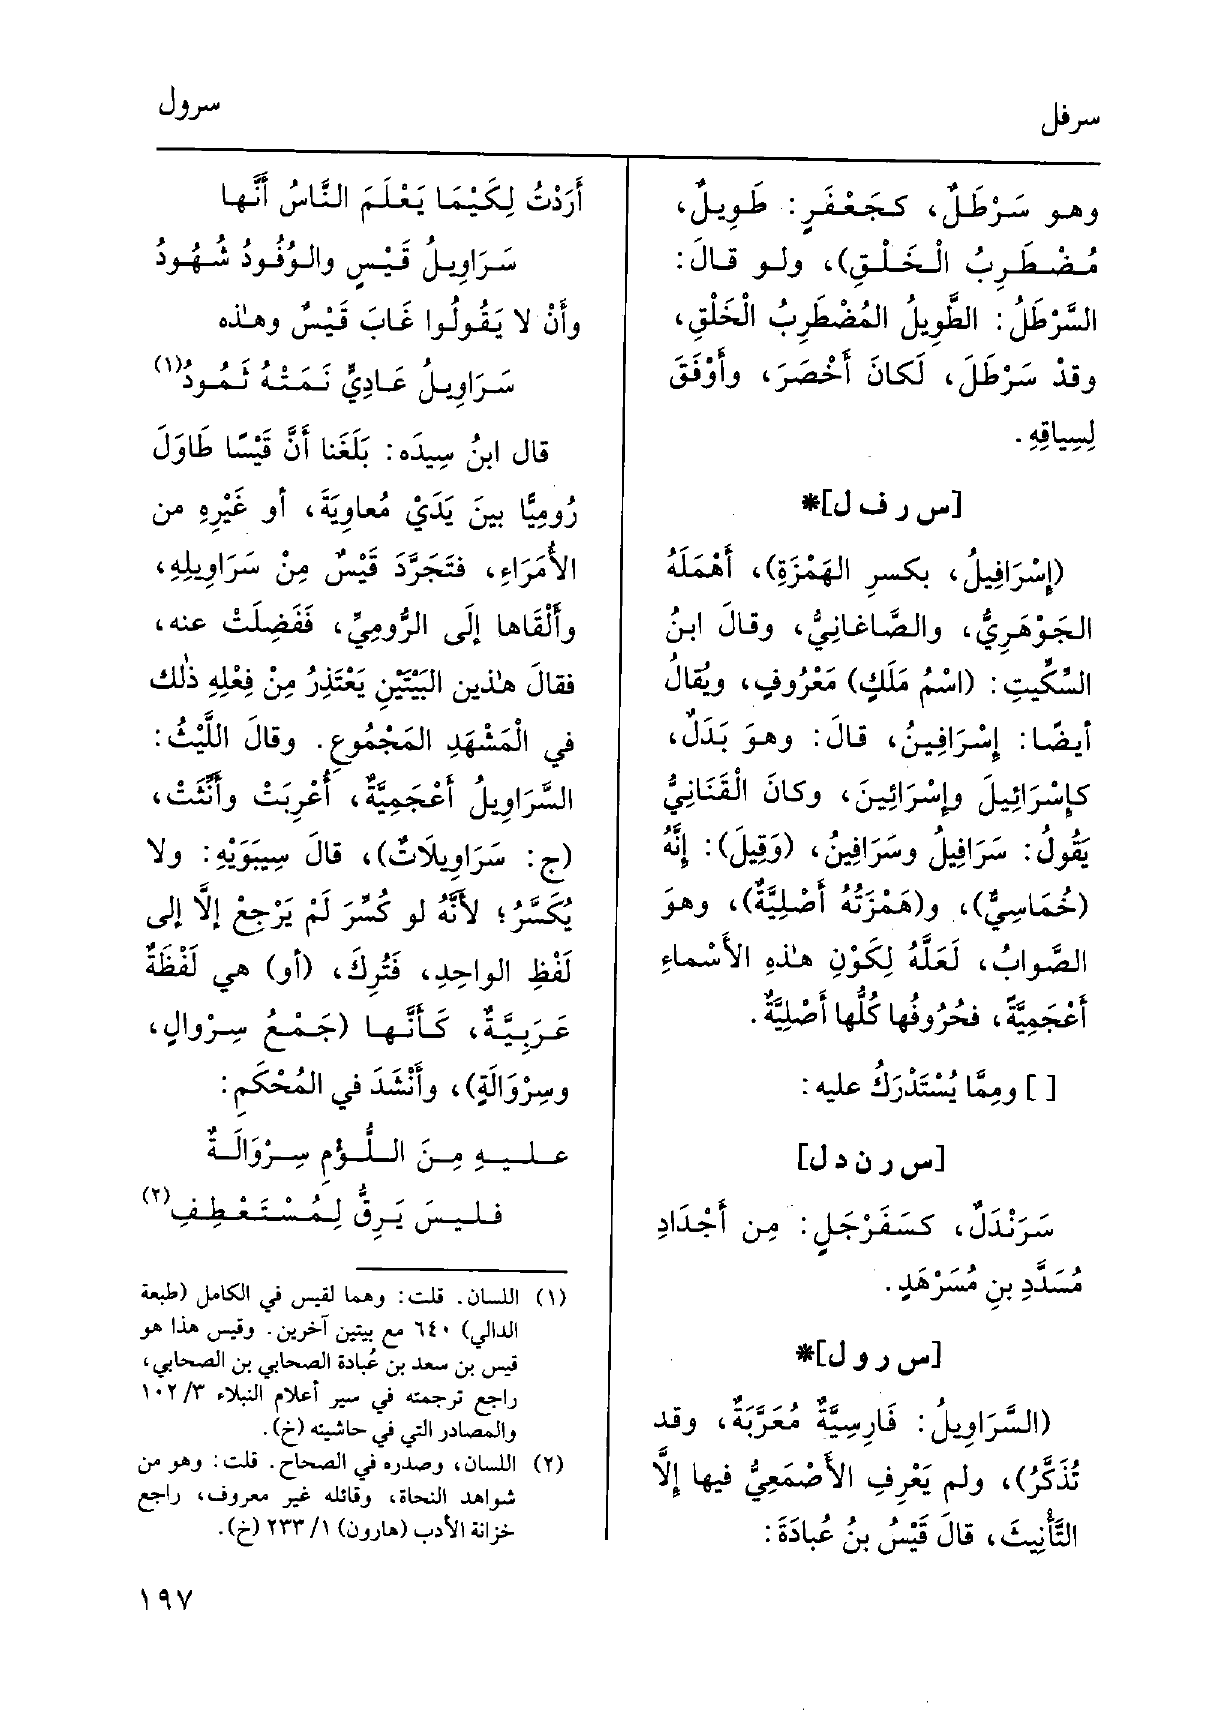 سرفل
سرول
وهو سَرْطَلٌ، كجَعْفَرٍ: طَوِيلٌ،
مُضْطَرِبُ الْخَلْقِ)، ولو قالَ:
السَّرْطَلُ: الطَّوِيلُ المُضْطَرِبُ الْخَلْقِ،
وقدْ سَرْطَلَ، لَكانَ أَخْصَرَ، وأَوْفَقَ
لِسِياقِهِ.
[س ر ف ل]*
(إِسْرَافِيلُ، بكسرِ الهَمْزَةِ)، أَهْمَلَهُ
الجَوْهَرِيُّ، والصَّاغانِيُّ، وقالَ ابنُ
السِّكِّيتِ: (اسْمُ مَلَكٍ) مَعْرُوفٍ، ويُقالُ
أيضًا: إِسْرَافِينُ، قالَ: وهوَ بَدَلٌ،
كإِسْرَائِيلَ وإِسْرَائِينَ، وكانَ الْقَنَانِيُّ
يَقُولُ: سَرَافِيلُ وسَرَافِينُ، (وَقِيلَ): إِنَّهُ
(خُمَاسِيٌّ)، و(هَمْزَتُهُ أَصْلِيَّةٌ)، وهوَ
الصَّوابُ، لَعَلَّهُ لِكَوْنِ هٰذهِ الأَسْماءِ
أَعْجَمِيَّةً، فحُرُوفُها كُلُّها أَصْلِيَّةٌ.
[ ] ومِمَّا يُسْتَدْرَكُ عليه:
[س ر ن د ل]
سَرَنْدَلٌ، كسَفَرْجَلٍ: مِن أَجْدَادِ
مُسَدَّدِ بنِ مُسَرْهَدٍ.
[س ر و ل]*
(السَّرَاوِيلُ: فَارِسِيَّةٌ مُعَرَّبَةٌ، وقد
تُذَكَّرُ)، ولم يَعْرِفِ الأَصْمَعِيُّ فيها إِلَّا
التَّأْنِيثَ، قالَ قَيْسُ بنُ عُبادَةَ:
أَرَدْتُ لِكَيْمَا يَعْلَمَ النَّاسُ أَنَّها
سَرَاوِيلُ قَيْسٍ والوُفُودُ شُهُودُ
وأَنْ لا يَقُولُوا غَابَ قَيْسٌ وهٰذه
سَرَاوِيلُ عَادِيٍّ نَمَتْهُ ثَمُودُ(١)
قال ابنُ سِيدَه: بَلَغَنا أَنَّ قَيْسًا طَاوَلَ
رُومِيًّا بينَ يَدَيْ مُعاوِيَةَ، أو غَيْرِهِ من
الأُمَرَاءِ، فتَجَرَّدَ قَيْسٌ مِنْ سَرَاوِيلِهِ،
وأَلْقَاها إِلَى الرُّومِيِّ، فَفَضِلَتْ عنه،
فقالَ هٰذينِ البَيْتَيْنِ يَعْتَذِرُ مِنْ فِعْلِهِ ذٰلك
في الْمَشْهَدِ المَجْمُوعِ. وقالَ اللَّيْثُ:
السَّرَاوِيلُ أَعْجَمِيَّةٌ، أُعْرِبَتْ وأُنِّثَتْ،
(ج: سَرَاوِيلَاتٌ)، قالَ سِيبَوَيْهِ: ولا
يُكَسَّرُ؛ لأَنَّهُ لو كُسِّرَ لَمْ يَرْجِعْ إِلَّا إلى
لَفْظِ الواحِدِ، فَتُرِكَ، (أو) هي لَفْظَةٌ
عَرَبِيَّةٌ، كَأَنَّها (جَمْعُ سِرْوالٍ،
وسِرْوَالَةٍ)، وأَنْشَدَ في المُحْكَمِ:
عليهِ مِنَ اللُّؤْمِ سِرْوَالَةٌ
فليسَ يَرِقُّ لِمُسْتَعْطِفِ(٢)
(١) اللسان. قلت: وهما لقيس في الكامل (طبعة
الدالي) ٦٤٠ مع بيتين آخرين. وقيس هذا هو
قيس بن سعد بن عُبادة الصحابي بن الصحابي،
راجع ترجمته في سير أعلام النبلاء ١٠٢/٣
والمصادر التي في حاشيته (خ).
(٢) اللسان، وصدره في الصحاح. قلت: وهو من
شواهد النحاة، وقائله غير معروف، راجع
خزانة الأدب (هارون) ٢٣٣/١ (خ).
١٩٧